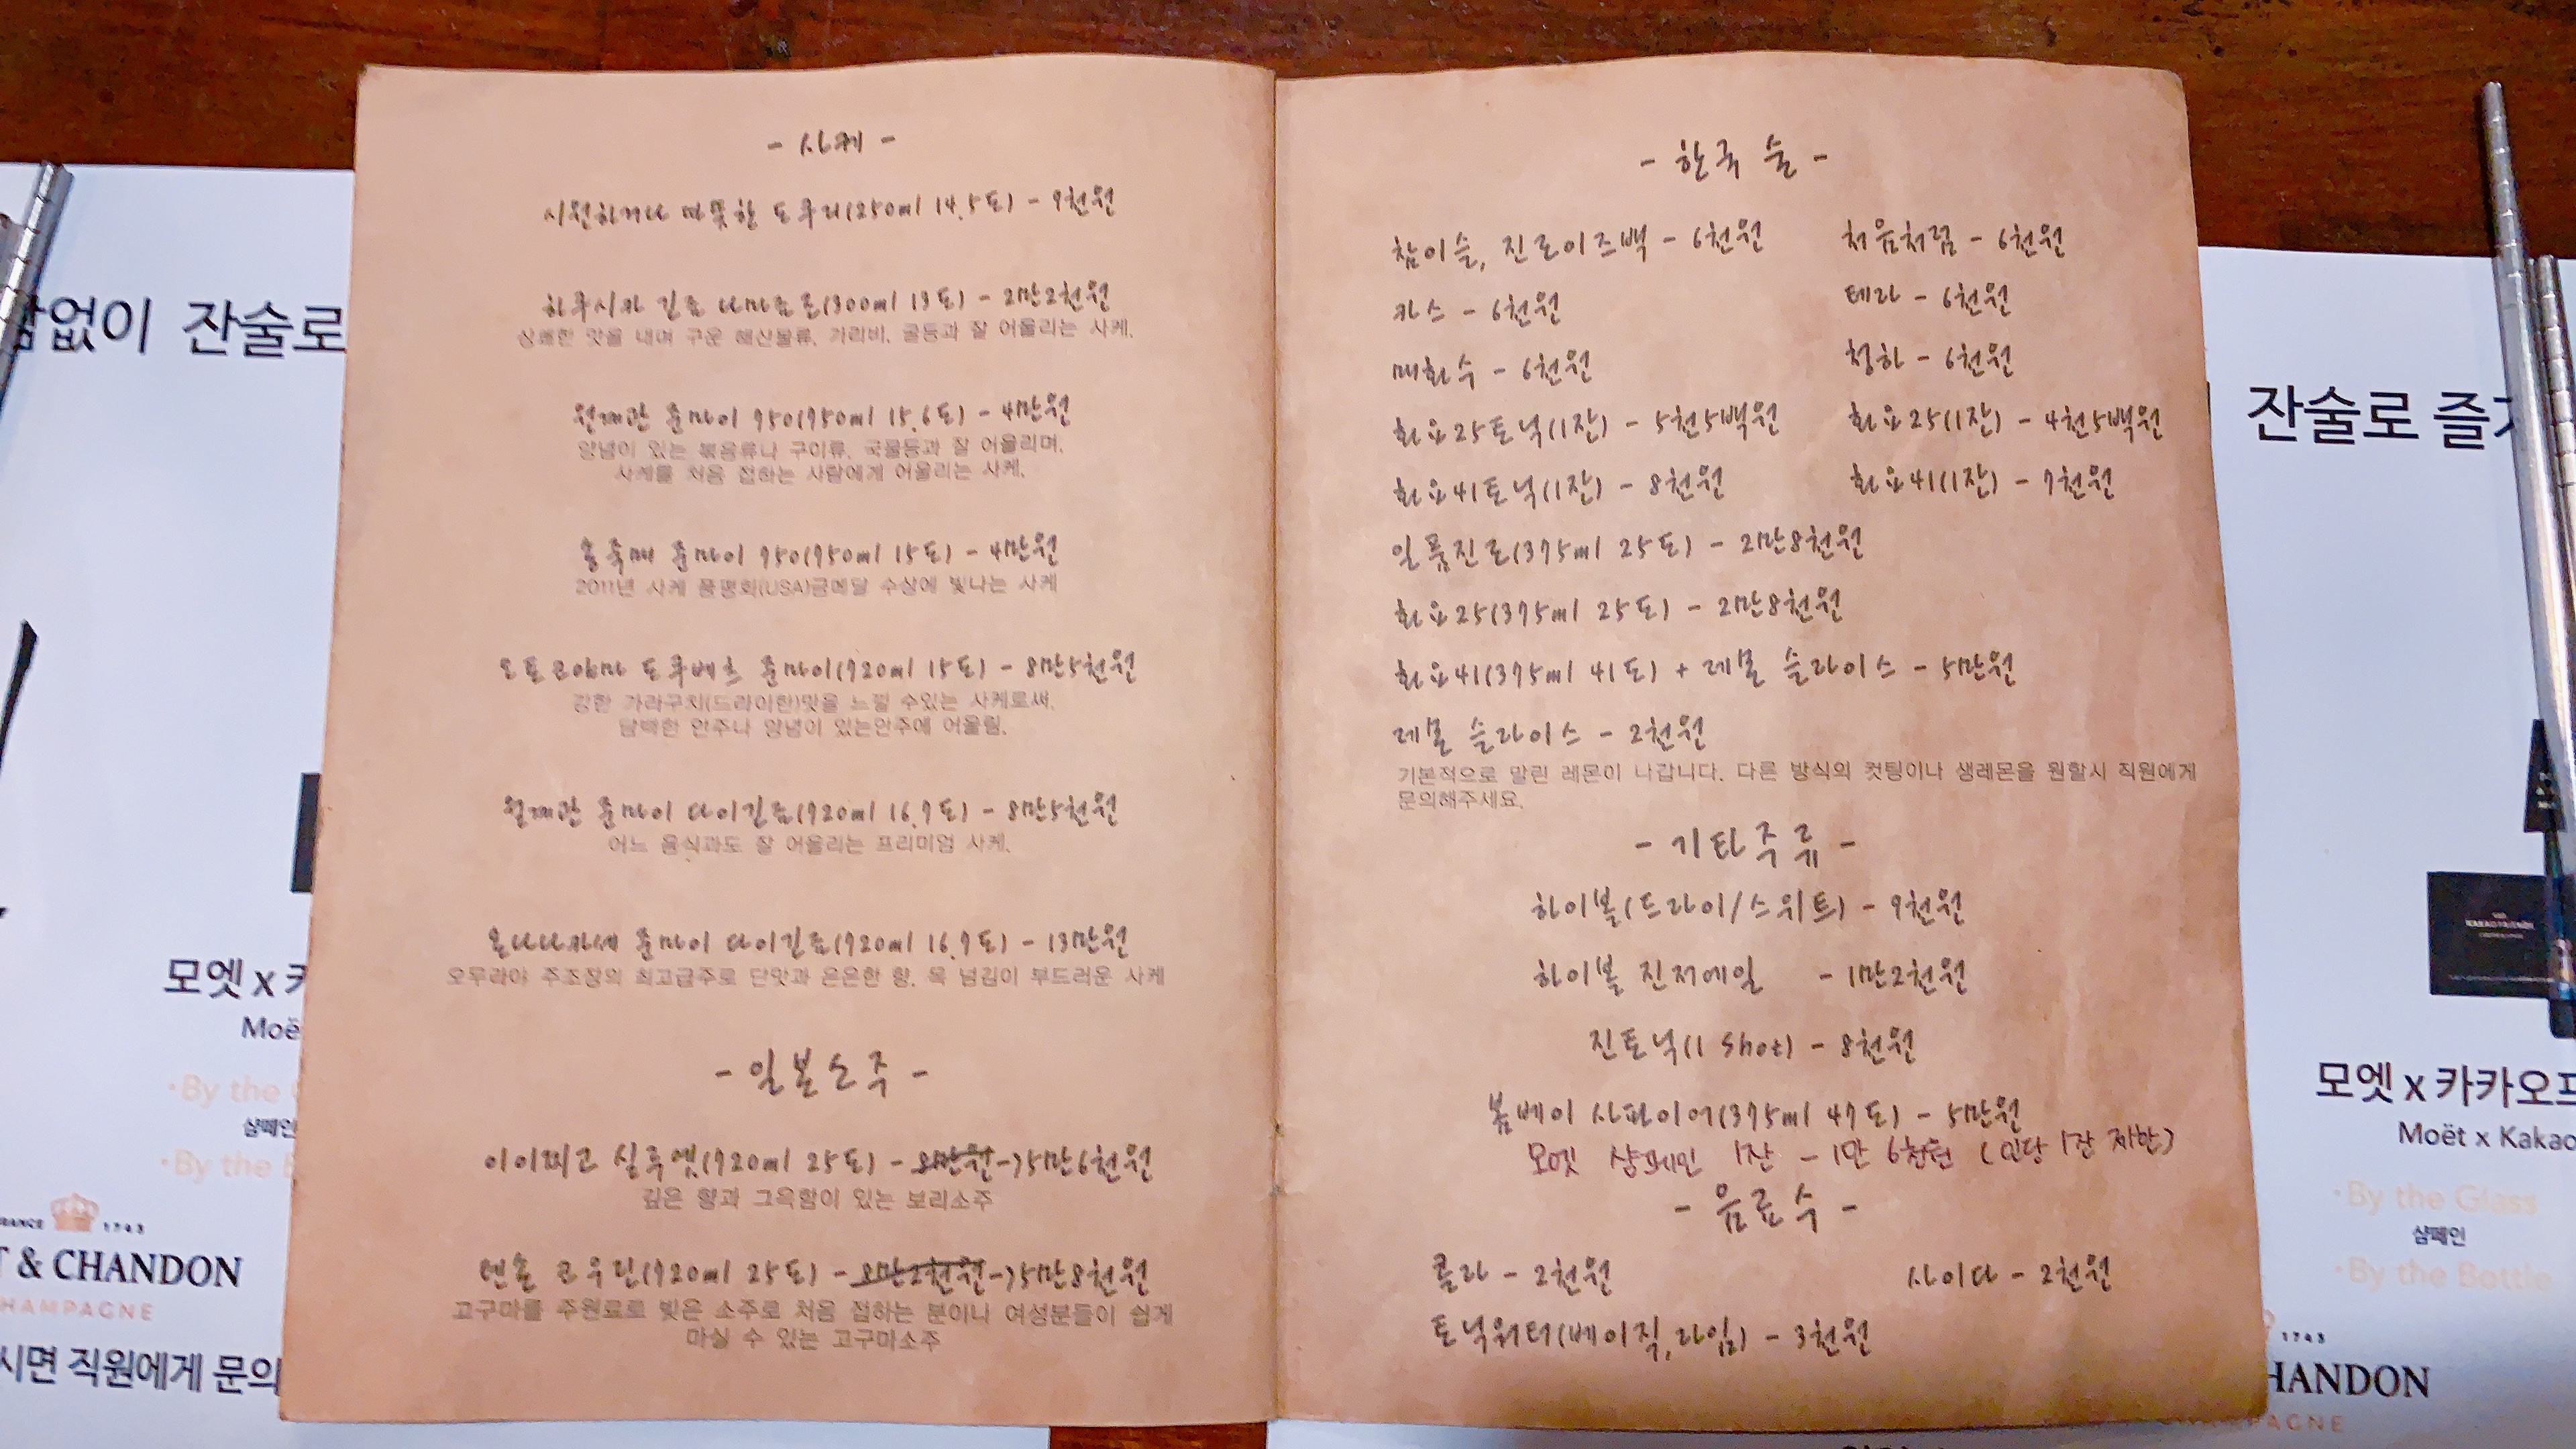 - 사케 -
시원하거나 따뜻한 도쿠리(250ml 14.5도) - 9천원
하쿠시카 긴죠 나마죠죠(300ml 13도) - 2만2천원
상쾌한 맛을 내며 구운 해산물류, 가리비, 굴등과 잘 어울리는 사케.
월계관 준마이 750(750ml 15.6도) - 4만원
양념이 있는 볶음류나 구이류, 국물등과 잘 어울리며,
사케를 처음 접하는 사람에게 어울리는 사케.
송죽매 준마이 750(750ml 15도) - 4만원
2011년 사케 품평회(USA)금메달 수상에 빛나는 사케
오토코야마 도쿠베츠 준마이(720ml 15도) - 8만5천원
강한 가라구치(드라이한)맛을 느낄 수있는 사케로써,
담백한 안주나 양념이 있는안주에 어울림.
월계관 준마이 다이긴죠(720ml 16.7도) - 8만5천원
어느 음식과도 잘 어울리는 프리미엄 사케.
온나나카세 준마이 다이긴죠(720ml 16.7도) - 13만원
오무라야 주조장의 최고급주로 단맛과 은은한 향, 목 넘김이 부드러운 사케
- 일본소주 -
이이찌고 실루엣(720ml 25도) - 8만원->5만6천원
깊은 향과 그윽함이 있는 보리소주
텐손 코우린(720ml 25도) - 8만2천원->5만8천원
고구마를 주원료로 빚은 소주로 처음 접하는 분이나 여성분들이 쉽게
마실 수 있는 고구마소주
- 한국 술 -
참이슬, 진로이즈백 - 6천원 처음처럼 - 6천원
카스 - 6천원 테라 - 6천원
매화수 - 6천원 청하 - 6천원
화요25토닉(1잔) - 5천5백원 화요25(1잔) - 4천5백원
화요41토닉(1잔) - 8천원 화요41(1잔) - 7천원
일품진로(375ml 25도) - 2만8천원
화요25(375ml 25도) - 2만8천원
화요41(375ml 41도) + 레몬 슬라이스 - 5만원
레몬 슬라이스 - 2천원
기본적으로 말린 레몬이 나갑니다. 다른 방식의 컷팅이나 생레몬을 원할시 직원에게
문의해주세요.
- 기타주류 -
하이볼(드라이/스위트) - 9천원
하이볼 진저에일 - 1만2천원
진토닉(1 shot) - 8천원
봄베이 사파이어(375ml 47도) - 5만원
모엣 샴페인 1잔 - 1만 6천원 (인당 1잔 제한)
- 음료수 -
콜라 - 2천원 사이다 - 2천원
토닉워터(베이직,라임) - 3천원
없이 잔술로
모엣 x 카
Moë
·By the
샴페인
·By the B
RANCE 1743
T & CHANDON
HAMPAGNE
시면 직원에게 문의
잔술로 즐기
KAKAO FRIENDS
모엣 x 카카오프
Moët x Kakao
·By the Glass
샴페인
·By the Bottle
1743
HANDON
PAGNE